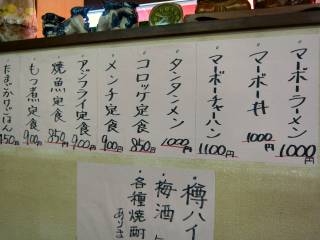 マーボーラーメン 1000円
マーボー丼 1000円
マーボーチャーハン 1100円
タンタンメン 1000円
コロッケ定食 850円
メンチ定食 900円
アジフライ定食 900円
焼魚定食 850円
もつ煮定食 900円
たまごかけごはん 450円
樽ハイ
梅酒
各種焼酎
あります